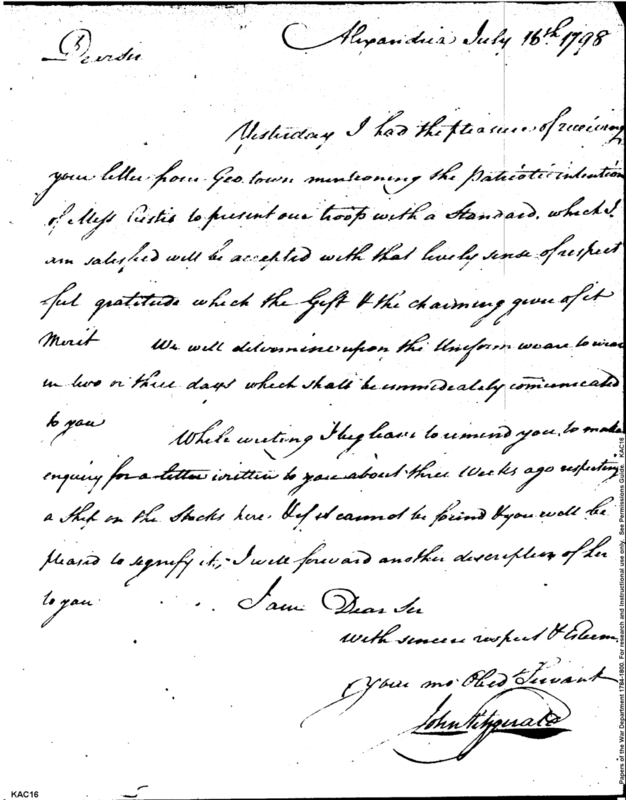 Alexandria July 16th 1798
Dear Sir
Yesterday I had the pleasure of receiving
your letter from Geo. town mentioning the Patriotic intention
of Miss Custis to present our troop with a Standard, which I
am satisfied will be accepted with that lively sense of respect
ful gratitude which the Gift & the charming giver of it
Merit We will determine upon the Uniform we are to wear
in two or three days which shall be immediately comunicated
to you
While writing I beg leave to remind you, to make
enquiry for a letter written to you about three Weeks ago respecting
a Ship on the Stocks here. & if it cannot be found & you will be
pleased to signify it, I will forward another description of her
to you
I am Dear Sir
with sincere respect & Esteem
Your mo. Obed Servant
John Fitzgerald
KAC16
Papers of the War Department 1784-1800. For research and instructional use only. See Permissions Guide. KAC16